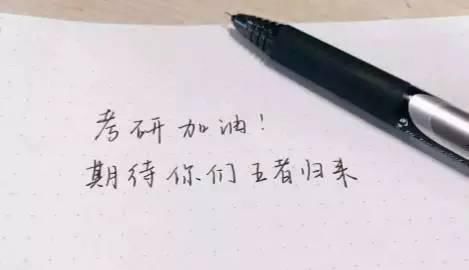 考研加油！
期待你们王者归来